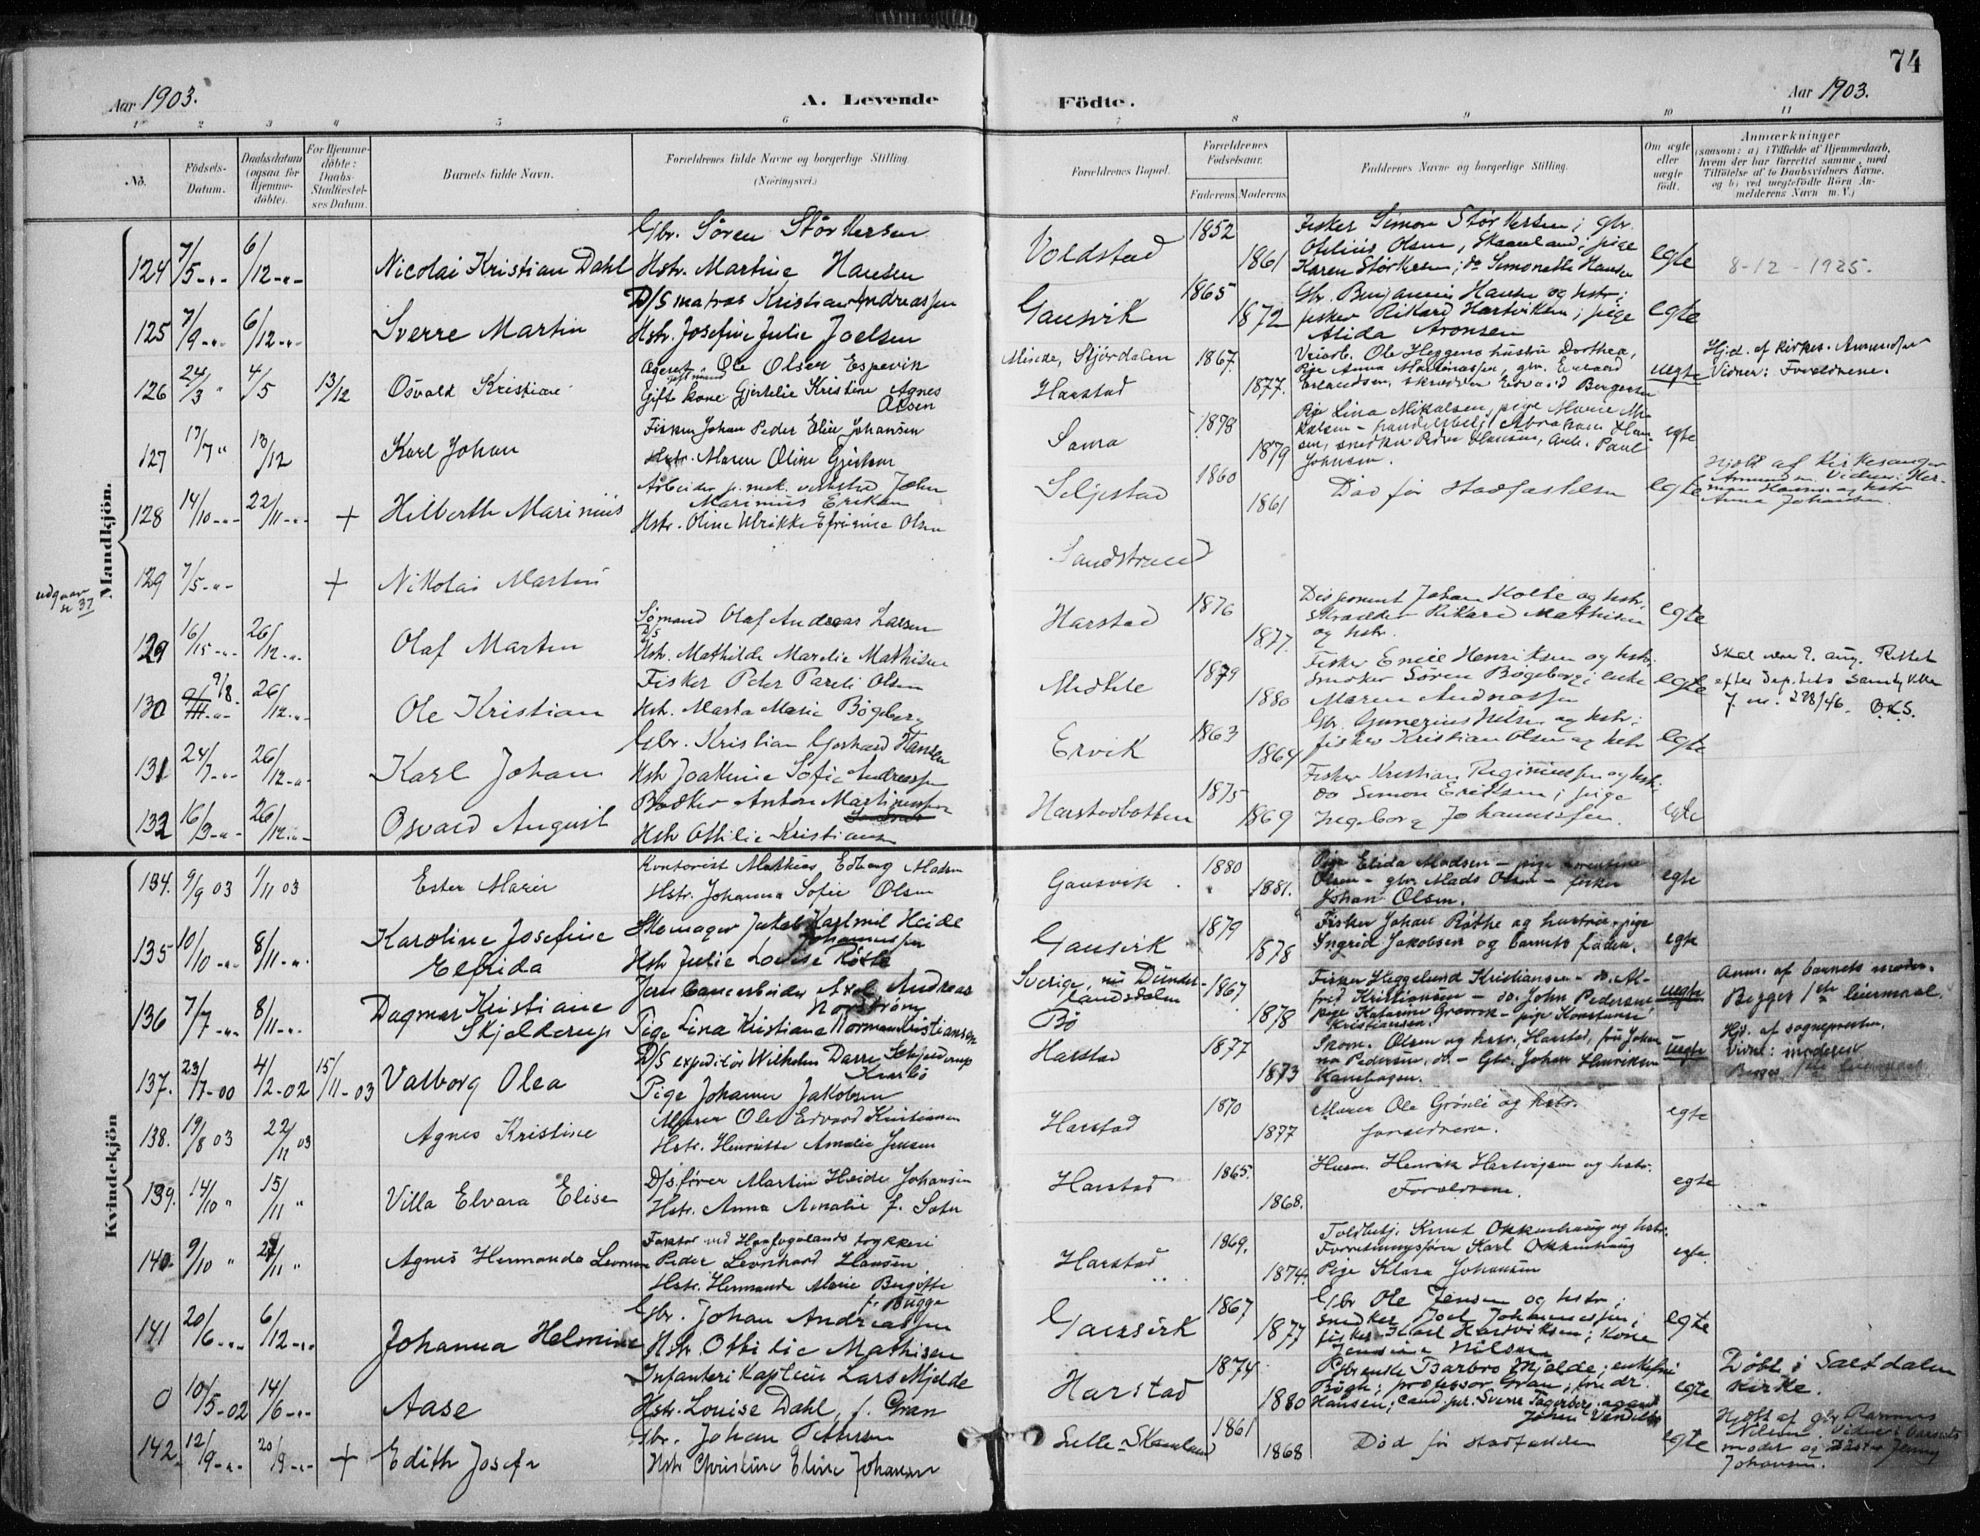 74
Aar 1903.
A. Levende
Födte.
Aar 1903.
1 2 3 4 5 6 7 8 9 10 11
No.
Födsels-Datum.
Daabsdatum (ogsaa for Hjemme-döbte).
For Hjemme-döbte: Daabs-Stadfæstel-ses Datum.
Barnets fulde Navn.
Forældrenes fulde Navne og borgerlige Stilling. (Næringsvei.)
Forældrenes Bopæl.
Forældrenes Födselsaar.
Faderens. Moderens.
Faddernes Navne og borgerlige Stilling.
Om ægte eller uægte födt.
Anmærkninger
(saasom: a) i Tilfælde af Hjemmedaab, hvem der har forrettet samme, med Tilföielse af to Daabsvidners Navne, og b) ved uægtefödte Börn An-melderens Navn m. V.)
Mandkjön.
124 7/5-"- 6/12-"- Nicolai Kristian Dahl
Gbr. Sören Störkersen
Hstr. Martine Hansen
Voldstad 1852 1861
Fisker Simon Störkersen; gbr.
Otelius Olsen, Skaanland; pige
Karen Störkersen; do Simonette Hansen
egte
8-12-1925.
125 7/9-"- 6/12-"- Sverre Martin
D/S matros Kristian Andreassen
Hstr. Josefine Julie Joelsen
Gausvik 1865 1872
Gbr. Benjamin Hansen og hstr;
fisker Rikard Hartviksen; pige
Alida Aronsen
egte
126 24/3 " 4/5 13/12 Osvald Kristian
Ole Olsen Espevik
Gift kone Gjertelie Kristine Agnes
Olsen
Stjördalen
Harstad 1867. 1877.
Ole Heggens hustru Dorthea,
Pige Anna
skrædder Edvard Bergersen
uegte
Hjd. af kirkes. Amundsen
Vidner: Forældrene.
127 17/7 " 13/12 Karl Johan
Fisker Johan Peder Elias Johansen
Hstr. Maren Oline
Sama 1878 1879
Pige Lina Mikalsen, pige Marie Mi-
kalsen - handelsbetj. Abraham Han-
sen, snedker Peder Hansen, Arb. Paul
Johnsen.
egte
128 14/10-"- 22/11-"- + Hilberth Marinius
Arbeider p. mek. verksted John
Marinius Eriksen
Hstr. Oline Ulrikke Efrosine Olsen
Seljestad 1860 1861
Död för stadfæstelsen
egte
Hjdbt. af Kirkesanger
Amundsen. Vidner: Her-
man Hansen og hstr
Anna Johansen.
udgaar
se 37
129 7/5-"- + Nikolai Martin
Sandstrand
129 16/15-"- 26/12-"- Olaf Martin
Sömand Olaf Andreas Larsen
Hstr. Mathilde Marelie Mathisen
Harstad 1876 1877.
Disponent Johan Holte og hstr.
Skrædder Rikard Mathisen
og hstr.
egte
130 9/8. 26/12-"- Ole Kristian
Fisker Peder Pareli Olsen
Hstr. Marta Marie Bögeberg
Medkile 1879 1880
Fisker Emil Henriksen og hstr.
Snedker Sören Bögeberg; enke
Maren Andreassen
egte
Skal være 9. aug. Rettet
efter Dep.tets samtykke
J. nr. 278/46. O.K.S.
131 24/7-"- 26/12-"- Karl Johan
Gbr. Kristian Gerhard Hansen
Hstr Joakime Sofie Andreassen
Ervik 1863 1864
Gbr. Gunerius Nilsen og hstr;
fisker Kristian Olsen og hstr
egte
132 16/9-"- 26/12-"- Osvald August
Bødker Anton Martinussen
Hstr Ottilie Kristiansen
Harstadbotten 1875 1869
Fisker Kristian Reginiussen og hstr.
do Simon Eriksen; pige
Ingeborg Johannessen.
egte
Kvindekjön
134. 9/9 03 1/11 03 Ester Marie
Kontorist Mathias Edberg Madsen
Hstr. Johanna Sofie Olsen
Gausvik. 1880 1881.
Pige Elida Madsen - pige Lorentine
Olsen - gbr. Mads Olsen - fisker
Johan Olsen.
egte
135 10/10-"- 8/11-"- Karoline Josefine
Elfrida
Skomager Jakob Karlmil Heide
Johannessen
Hstr Julie Lovise Röthe
Gausvik 1879 1878
Fisker Johan Röthe og hustru - pige
Ingrid Jakobsen og barnets fader.
egte
136 7/7-"- 8/11-"- Dagmar Kristiane
Skjelderup
Jernbanearbeider Axel Andreas
Norström
Pige Lina Kristiane Norman Kristiansen
Sverige, nu Dunder-
landsdalen
Bö 1867 1878
Fisker Heggelund Kristiansen - do. Al-
fred Kristiansen - do. John Pedersen
pige Katarine - pige Konstanse
Kristiansen.
uegte
Anm. af barnets moder.
Begges 1ste leiermaal.
137. 23/7-00 4/2-02 15/11-03 Valborg Olea
D/S expeditör Wilhelm Darre Schjelderup
Pige Johanna Jakobsen
Harstad 1877 1873
Skom. Olsen og hstr., Harstad, fru Johan
na Pedersen, do. - Gbr. Johan Henriksen
Kanebogen.
uegte
Hjd. af sogneprestem.
Vidne: moderen
Begges 1ste leiermaal.
138. 19/8 03 22/11 03 Agnes Kristine
Murer Ole Edvard Kristiansen
Hstr. Henriette Amalie Jensen
Harstad 1870 1877
Murer Ole Grönli og hstr.
forældrene.
egte
139. 14/10 " 15/11 " Villa Elvara Elise
D/sförer Martin Heide Johansen
Hstr. Anna Amalie f.
Harstad 1865. 1868.
Husm. Henrik Hartvigsen og hstr.
Forældrene.
egte
140. 9/10 " 27/11 " Agnes Hermanda Leonora
Faktor ved Haalogalands trykkeri
Peder Leonhard Hansen.
Hstr. Hermanda Marie Birgitte
f. Bugge
Harstad 1869. 1874.
Toldbetj. Knut Okkenhaug og hstr.
Forretningsförer Karl Okkenhaug
Pige Klara Johansen
egte.
141 20/6-"- 6/12-"- Johanna Helmine
Gbr. Johan Andreassen
Hstr Ottilie Mathisen
Gausvik 1867 1877
Gbr Ole Jensen og hstr;
snedker Joel Johannessen;
fisker Karl Hartviksen; kone
Jensine Nilsen
egte
0 10/5-02 14/6-"- Aase
Infanterikaptein Lars Mjelde
Hstr. Louise Dahl, f. Gran
Harstad 1874 1880
Barbro Mjelde; enkefru
Bögh; professor Gran; fru dr.
Hansen; cand. jur. Sverre Fagerberg; agent
Johan Vendelbo
egte
Döbt i Saltdalen
kirke.
142. 12/9-"- 20/9-"- + Edith Josefa
Gbr. Johan Pettersen
Hstr Christine Eline Johansen
Selle-Skaanland 1861 1868
Död för stadfæstelsen
egte
Hjdbt af gbr Rasmus
Nilsen. Vidner: barnets
moder og söster Jenny
Johansen.